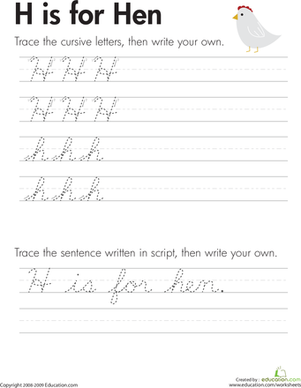 H is for Hen
Trace the cursive letters, then write your own.
H H H
H H H
h h h
h h h
Trace the sentence written in script, then write your own.
H is for hen.
Copyright 2008-2009 Education.com
Created by :
education.com
www.education.com/worksheets